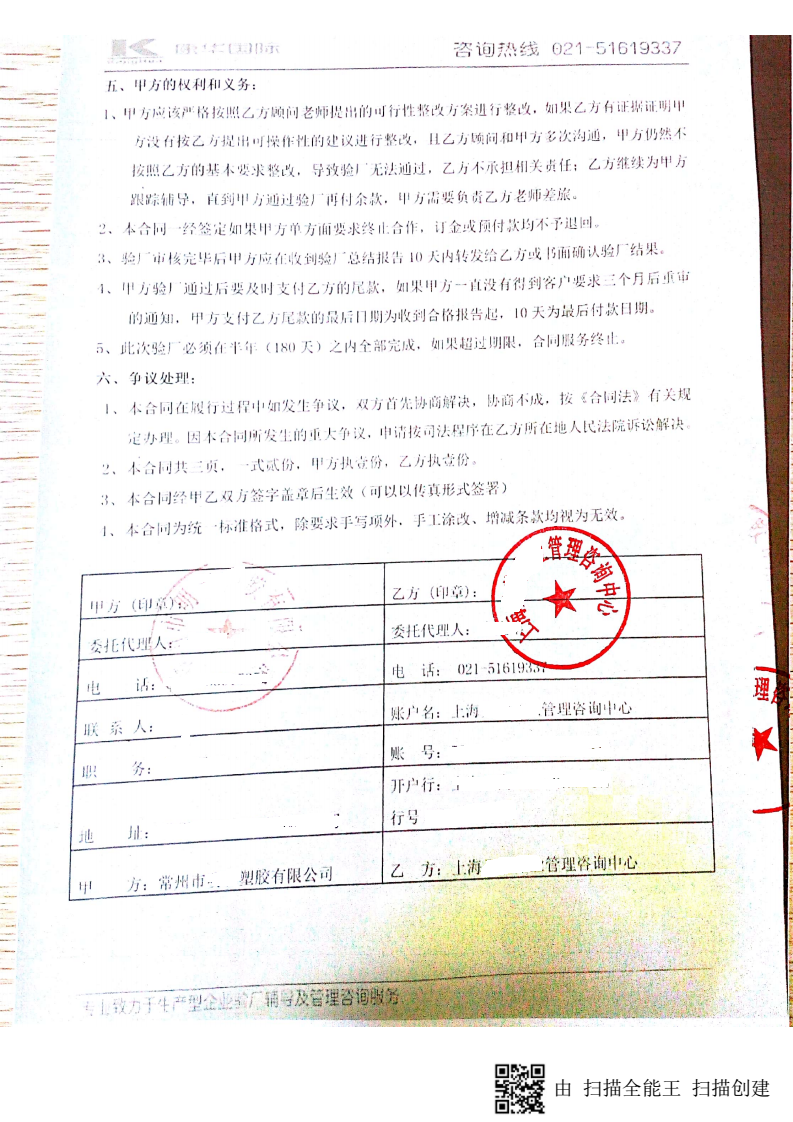 咨询热线 021-51619337
五、甲方的权利和义务:
1、甲方应该严格按照乙方顾问老师提出的可行性整改方案进行整改，如果乙方有证据证明甲
方没有按乙方提出可操作性的建议进行整改，且乙方顾问和甲方多次沟通，甲方仍然不
按照乙方的基本要求整改，导致验厂无法通过，乙方不承担相关责任；乙方继续为甲方
跟踪辅导，直到甲方通过验厂再付余款，甲方需要负责乙方老师差旅。
2、本合同一经签定如果甲方单方面要求终止合作，订金或预付款均不予退回。
3、验厂审核完毕后甲方应在收到验厂总结报告 10 天内转发给乙方或书面确认验厂结果。
4、甲方验厂通过后要及时支付乙方的尾款，如果甲方一直没有得到客户要求三个月后重审
的通知，甲方支付乙方尾款的最后日期为收到合格报告起，10 天为最后付款日期。
5、此次验厂必须在半年（180 天）之内全部完成，如果超过期限，合同服务终止。
六、争议处理:
1、本合同在履行过程中如发生争议，双方首先协商解决，协商不成，按《合同法》有关规
定办理。因本合同所发生的重大争议，申请按司法程序在乙方所在地人民法院诉讼解决。
2、本合同共三页，一式贰份，甲方执壹份，乙方执壹份。
3、本合同经甲乙双方签字盖章后生效（可以以传真形式签署）
4、本合同为统一标准格式，除要求手写项外，手工涂改、增减条款均视为无效。
甲方（印章）:
乙方（印章）:
管理咨询中心
上海
委托代理人:
委托代理人:
电 话:
电 话: 021-51619337
联 系 人:
账户名: 上海 管理咨询中心
职 务:
账 号:
开户行:
行号
地 址:
甲 方: 常州市 塑胶有限公司
乙 方: 上海 管理咨询中心
理咨
专业致力于生产型企业验厂辅导及管理咨询服务
由 扫描全能王 扫描创建